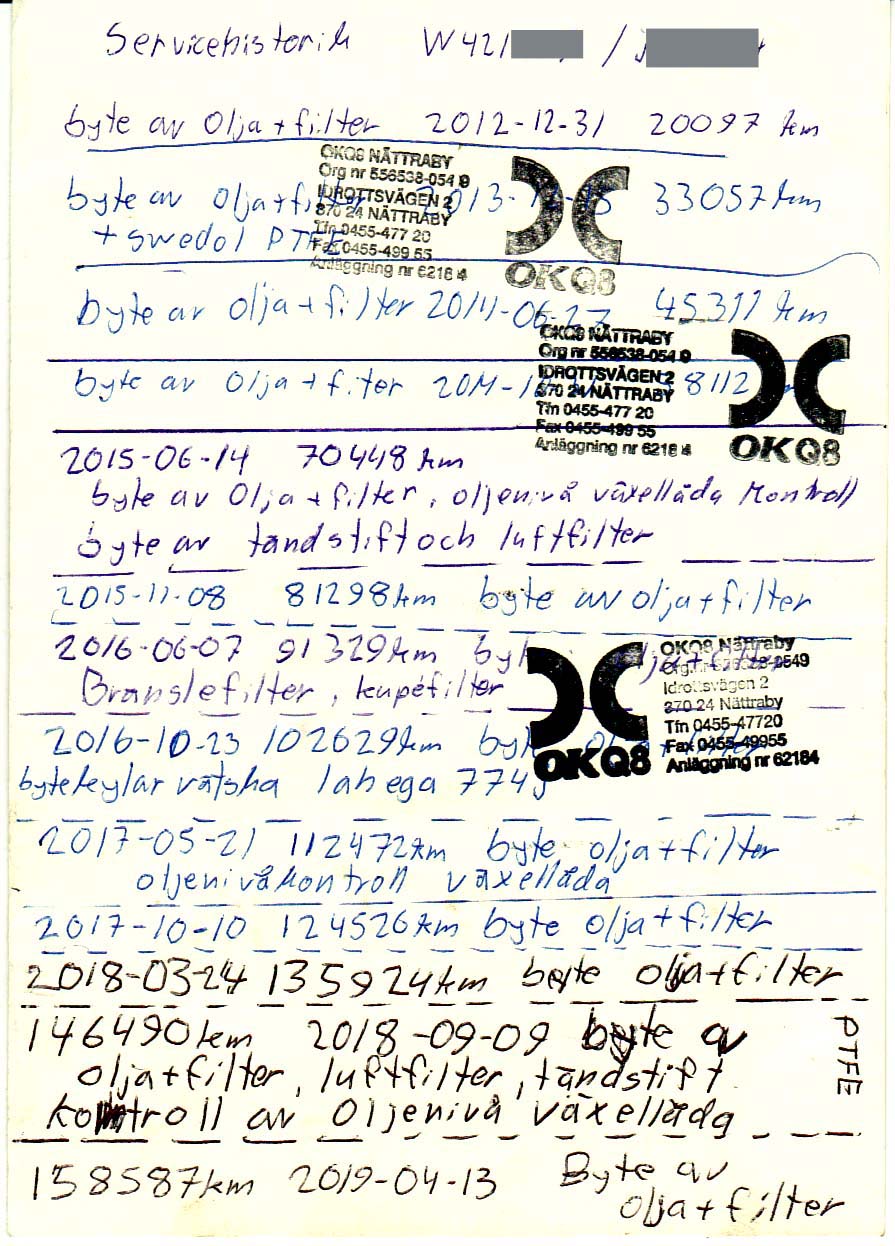 Servicehistorik W421 /
byte av olja+filter 2012-12-31 20097 km
OKQ8 NÄTTRABY
Org nr 556538-054 9
IDROTTSVÄGEN 2
370 24 NÄTTRABY
Tfn 0455-477 20
Fax 0455-499 55
Anläggning nr 6218 4
OKQ8
byte av olja+filter 33057km
+ swedol PTFE
byte av olja+filter 2014-06-27 45311 km
OKQ8 NÄTTRABY
Org nr 556538-054 9
IDROTTSVÄGEN 2
370 24 NÄTTRABY
Tfn 0455-477 20
Fax 0455-499 55
Anläggning nr 6218 4
OKQ8
byte av olja+fiter
2015-06-14 70448 km
byte av olja+filter, oljenivå växellåda kontroll
byte av tändstift och luftfilter
2015-11-08 81298km byte av olja+filter
2016-06-07 91329km olja+filter
Bränslefilter, kupéfilter
OKQ8 Nättraby
Idrottsvägen 2
370 24 Nättraby
Tfn 0455-47720
Fax 0455-49955
Anläggning nr 62184
OKQ8
2016-10-23 102629km
byte kylar vätska lahega 774
2017-05-21 112472km byte olja+filter
oljenivåkontroll växellåda
2017-10-10 124526km byte olja+filter
2018-03-24 135924km byte olja+filter
146490km 2018-09-09 byte av
olja+filter, luftfilter, tändstift
kontroll av oljenivå växellåda
PTFE
158587km 2019-04-13 Byte av
olja+filter